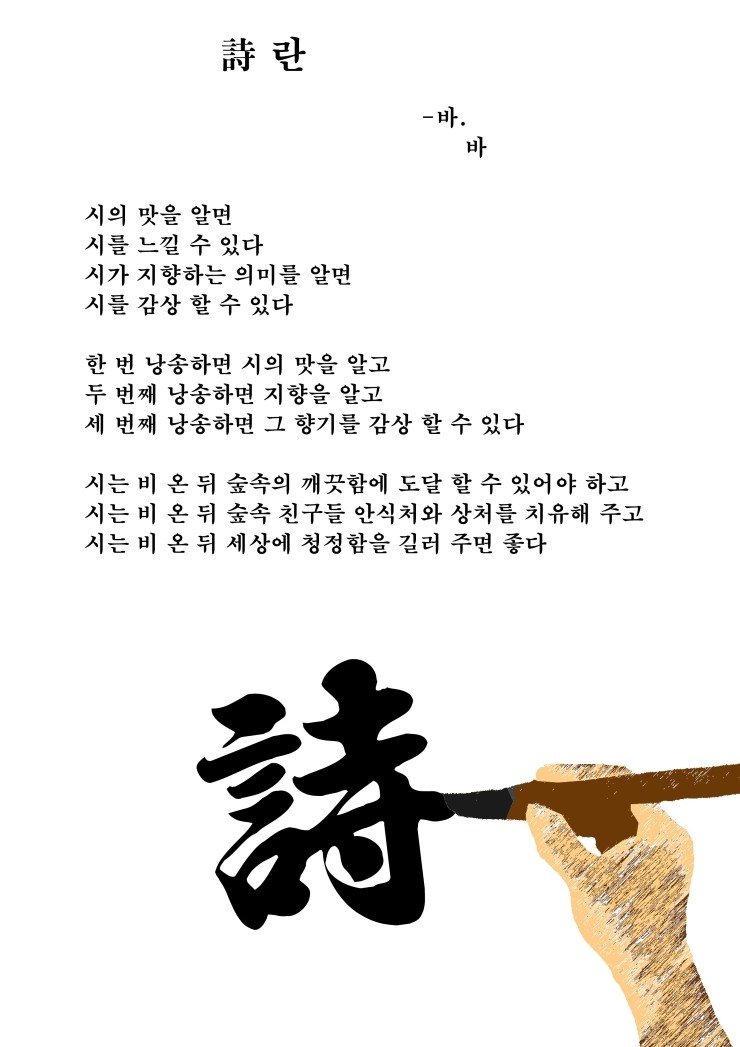 詩 란
-바.
바
시의 맛을 알면
시를 느낄 수 있다
시가 지향하는 의미를 알면
시를 감상 할 수 있다
한 번 낭송하면 시의 맛을 알고
두 번째 낭송하면 지향을 알고
세 번째 낭송하면 그 향기를 감상 할 수 있다
시는 비 온 뒤 숲속의 깨끗함에 도달 할 수 있어야 하고
시는 비 온 뒤 숲속 친구들 안식처와 상처를 치유해 주고
시는 비 온 뒤 세상에 청정함을 길러 주면 좋다
詩